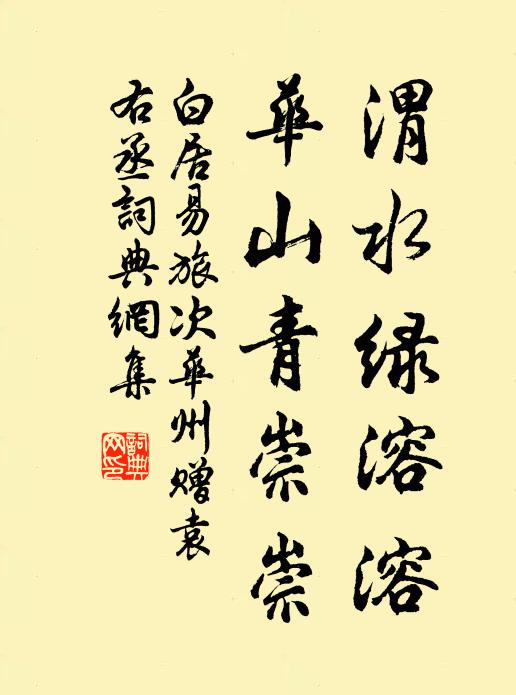 渭水綠溶溶
華山青崇崇
白居易旅次華州贈袁
右丞詞典網集
詞典網印